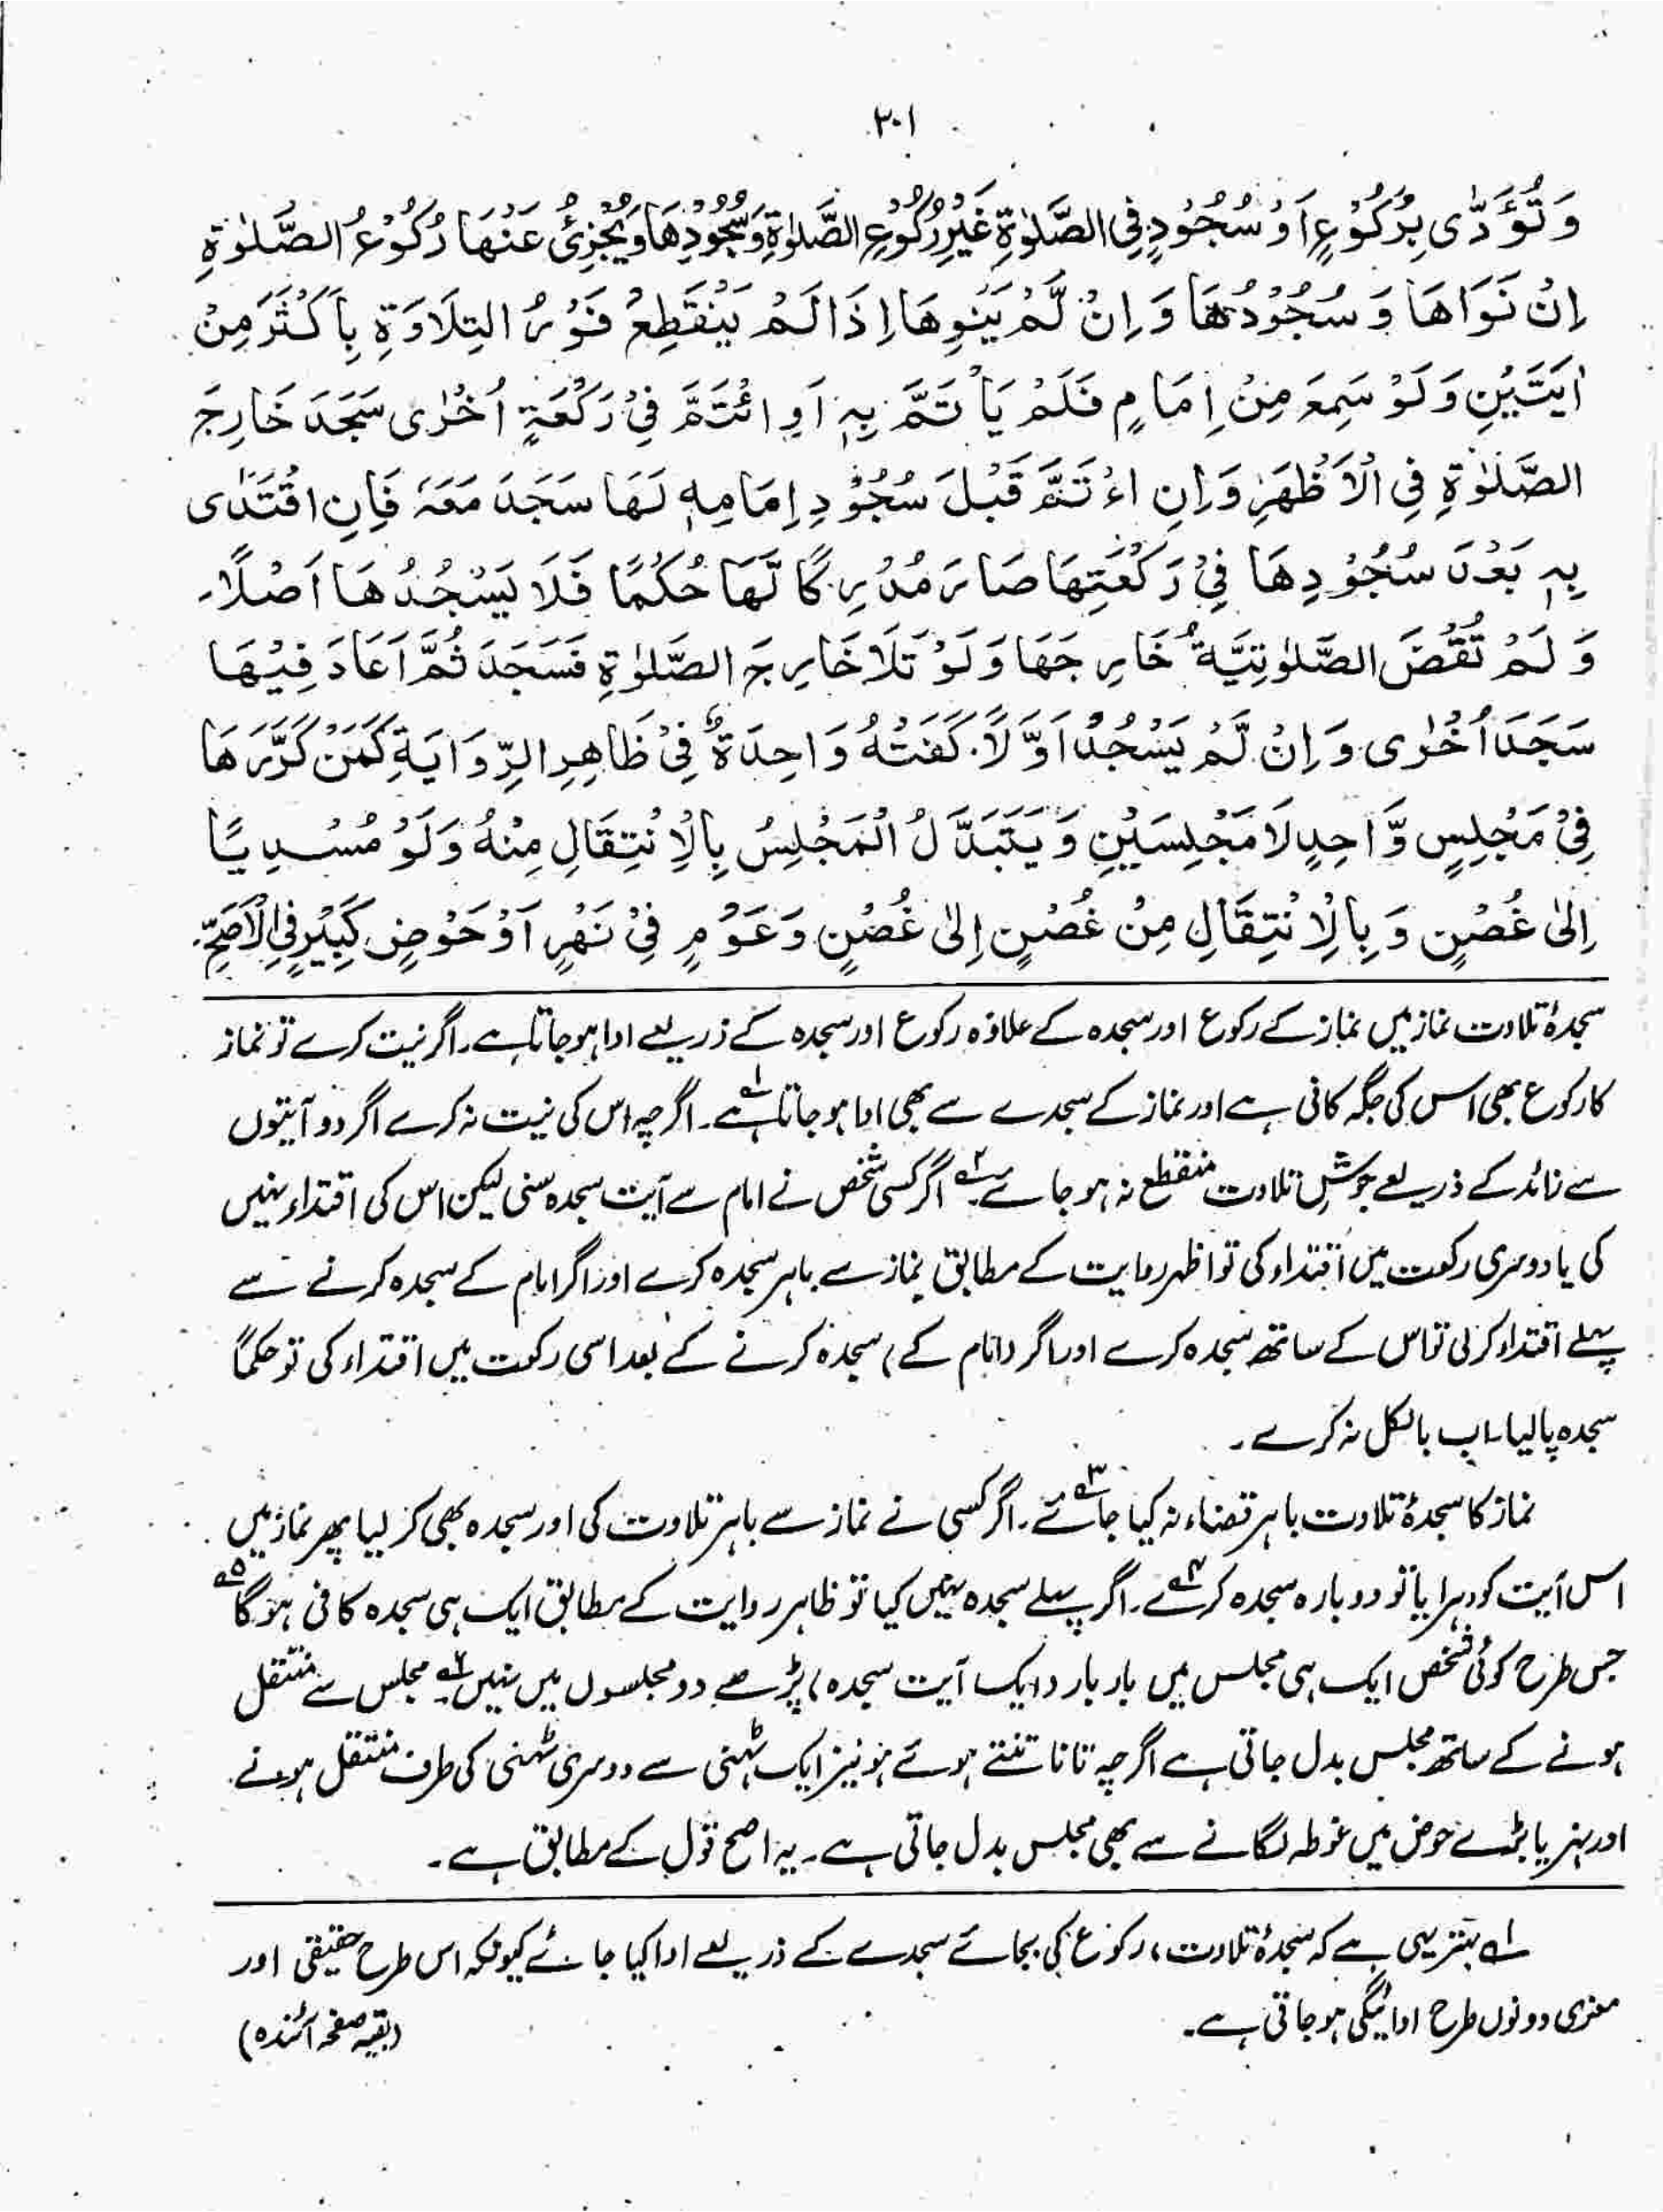 ۳۰۱
وَ تُؤَدّٰى بِرُكُوْعٍ اَوْ سُجُوْدٍ فِى الصَّلٰوةِ غَيْرِ رُكُوْعِ الصَّلٰوةِ وَسُجُوْدِهَا وَيُجْزِئُ عَنْهَا رُكُوْعُ الصَّلٰوةِ
اِنْ نَوَاهَا وَ سُجُوْدُهَا وَ اِنْ لَّمْ يَنْوِهَا اِذَا لَمْ يَنْقَطِعْ فَوْرُ التِلَاوَةِ بِاَكْثَرَ مِنْ
اٰيَتَيْنِ وَ لَوْ سَمِعَ مِنْ اِمَامٍ فَلَمْ يَاْتَمَّ بِهٖ اَوِ ائْتَمَّ فِىْ رَكْعَةٍ اُخْرٰى سَجَدَ خَارِجَ
الصَّلٰوةِ فِى الْاَظْهَرِ وَ اِنِ اءْتَمَّ قَبْلَ سُجُوْدِ اِمَامِهٖ لَهَا سَجَدَ مَعَهٗ فَاِنِ اقْتَدٰى
بِهٖ بَعْدَ سُجُوْدِهَا فِىْ رَكْعَتِهَا صَارَ مُدْرِكًا لَّهَا حُكْمًا فَلَا يَسْجُدُهَا اَصْلًا۔
وَ لَمْ تُقْضَ الصَّلٰوتِيَّةُ خَارِجَهَا وَ لَوْ تَلَا خَارِجَ الصَّلٰوةِ فَسَجَدَ ثُمَّ اَعَادَ فِيْهَا
سَجَدَ اُخْرٰى وَ اِنْ لَّمْ يَسْجُدْ اَوَّلًا كَفَتْهُ وَاحِدَةٌ فِىْ ظَاهِرِ الرِّوَايَةِ كَمَنْ كَرَّرَهَا
فِىْ مَجْلِسٍ وَّاحِدٍ لَا مَجْلِسَيْنِ وَ يَتَبَدَّلُ الْمَجْلِسُ بِالْاِنْتِقَالِ مِنْهُ وَلَوْ مُسْدِيًا
اِلٰى غُصْنٍ وَ بِالْاِنْتِقَالِ مِنْ غُصْنٍ اِلٰى غُصْنٍ وَ عَوْمٍ فِىْ نَهْرٍ اَوْ حَوْضٍ كَبِيْرٍ فِى الْاَصَحِّ۔
سجدۂ تلاوت نماز میں نماز کے رکوع اور سجدہ کے علاوہ رکوع اور سجدہ کے ذریعے ادا ہو جاتا ہے۔ اگر نیت کرے تو نماز
کا رکوع بھی اس کی جگہ کافی ہے اور نماز کے سجدے سے بھی ادا ہو جاتا ہے۱؎۔ اگرچہ اس کی نیت نہ کرے اگر دو آیتوں
سے زائد کے ذریعے جوشِ تلاوت منقطع نہ ہو جائے۲؎۔ اگر کسی شخص نے امام سے آیت سجدہ سنی لیکن اس کی اقتداء نہیں
کی یا دوسری رکعت میں اقتداء کی تو اظہر روایت کے مطابق نماز سے باہر سجدہ کرے اور اگر امام کے سجدہ کرنے سے
پہلے اقتداء کرلی تو اس کے ساتھ سجدہ کرے اور اگر (امام کے) سجدہ کرنے کے بعد اسی رکعت میں اقتداء کی تو حکماً
سجدہ پا لیا۔ اب بالکل نہ کرے۔
نماز کا سجدۂ تلاوت باہر قضاء نہ کیا جائے۳؎۔ اگر کسی نے نماز سے باہر تلاوت کی اور سجدہ بھی کر لیا پھر نماز میں
اس آیت کو دہرایا تو دوبارہ سجدہ کرے۴؎۔ اگر پہلے سجدہ نہیں کیا تو ظاہر روایت کے مطابق ایک ہی سجدہ کافی ہو گا۵؎
جس طرح کوئی شخص ایک ہی مجلس میں بار بار (ایک آیت سجدہ) پڑھے دو مجلسوں میں نہیں۶؎۔ مجلس سے منتقل
ہونے کے ساتھ مجلس بدل جاتی ہے اگرچہ تانا تنتے ہوئے ہو نیز ایک ٹہنی سے دوسری ٹہنی کی طرف منتقل ہونے
اور نہر یا بڑے حوض میں غوطہ لگانے سے بھی مجلس بدل جاتی ہے۔ یہ اصح قول کے مطابق ہے۔
۱؎ بہتر یہی ہے کہ سجدۂ تلاوت، رکوع کی بجائے سجدے کے ذریعے ادا کیا جائے کیونکہ اس طرح حقیقی اور
معنوی دونوں طرح ادائیگی ہو جاتی ہے۔ (بقیہ صفحہ آئندہ)